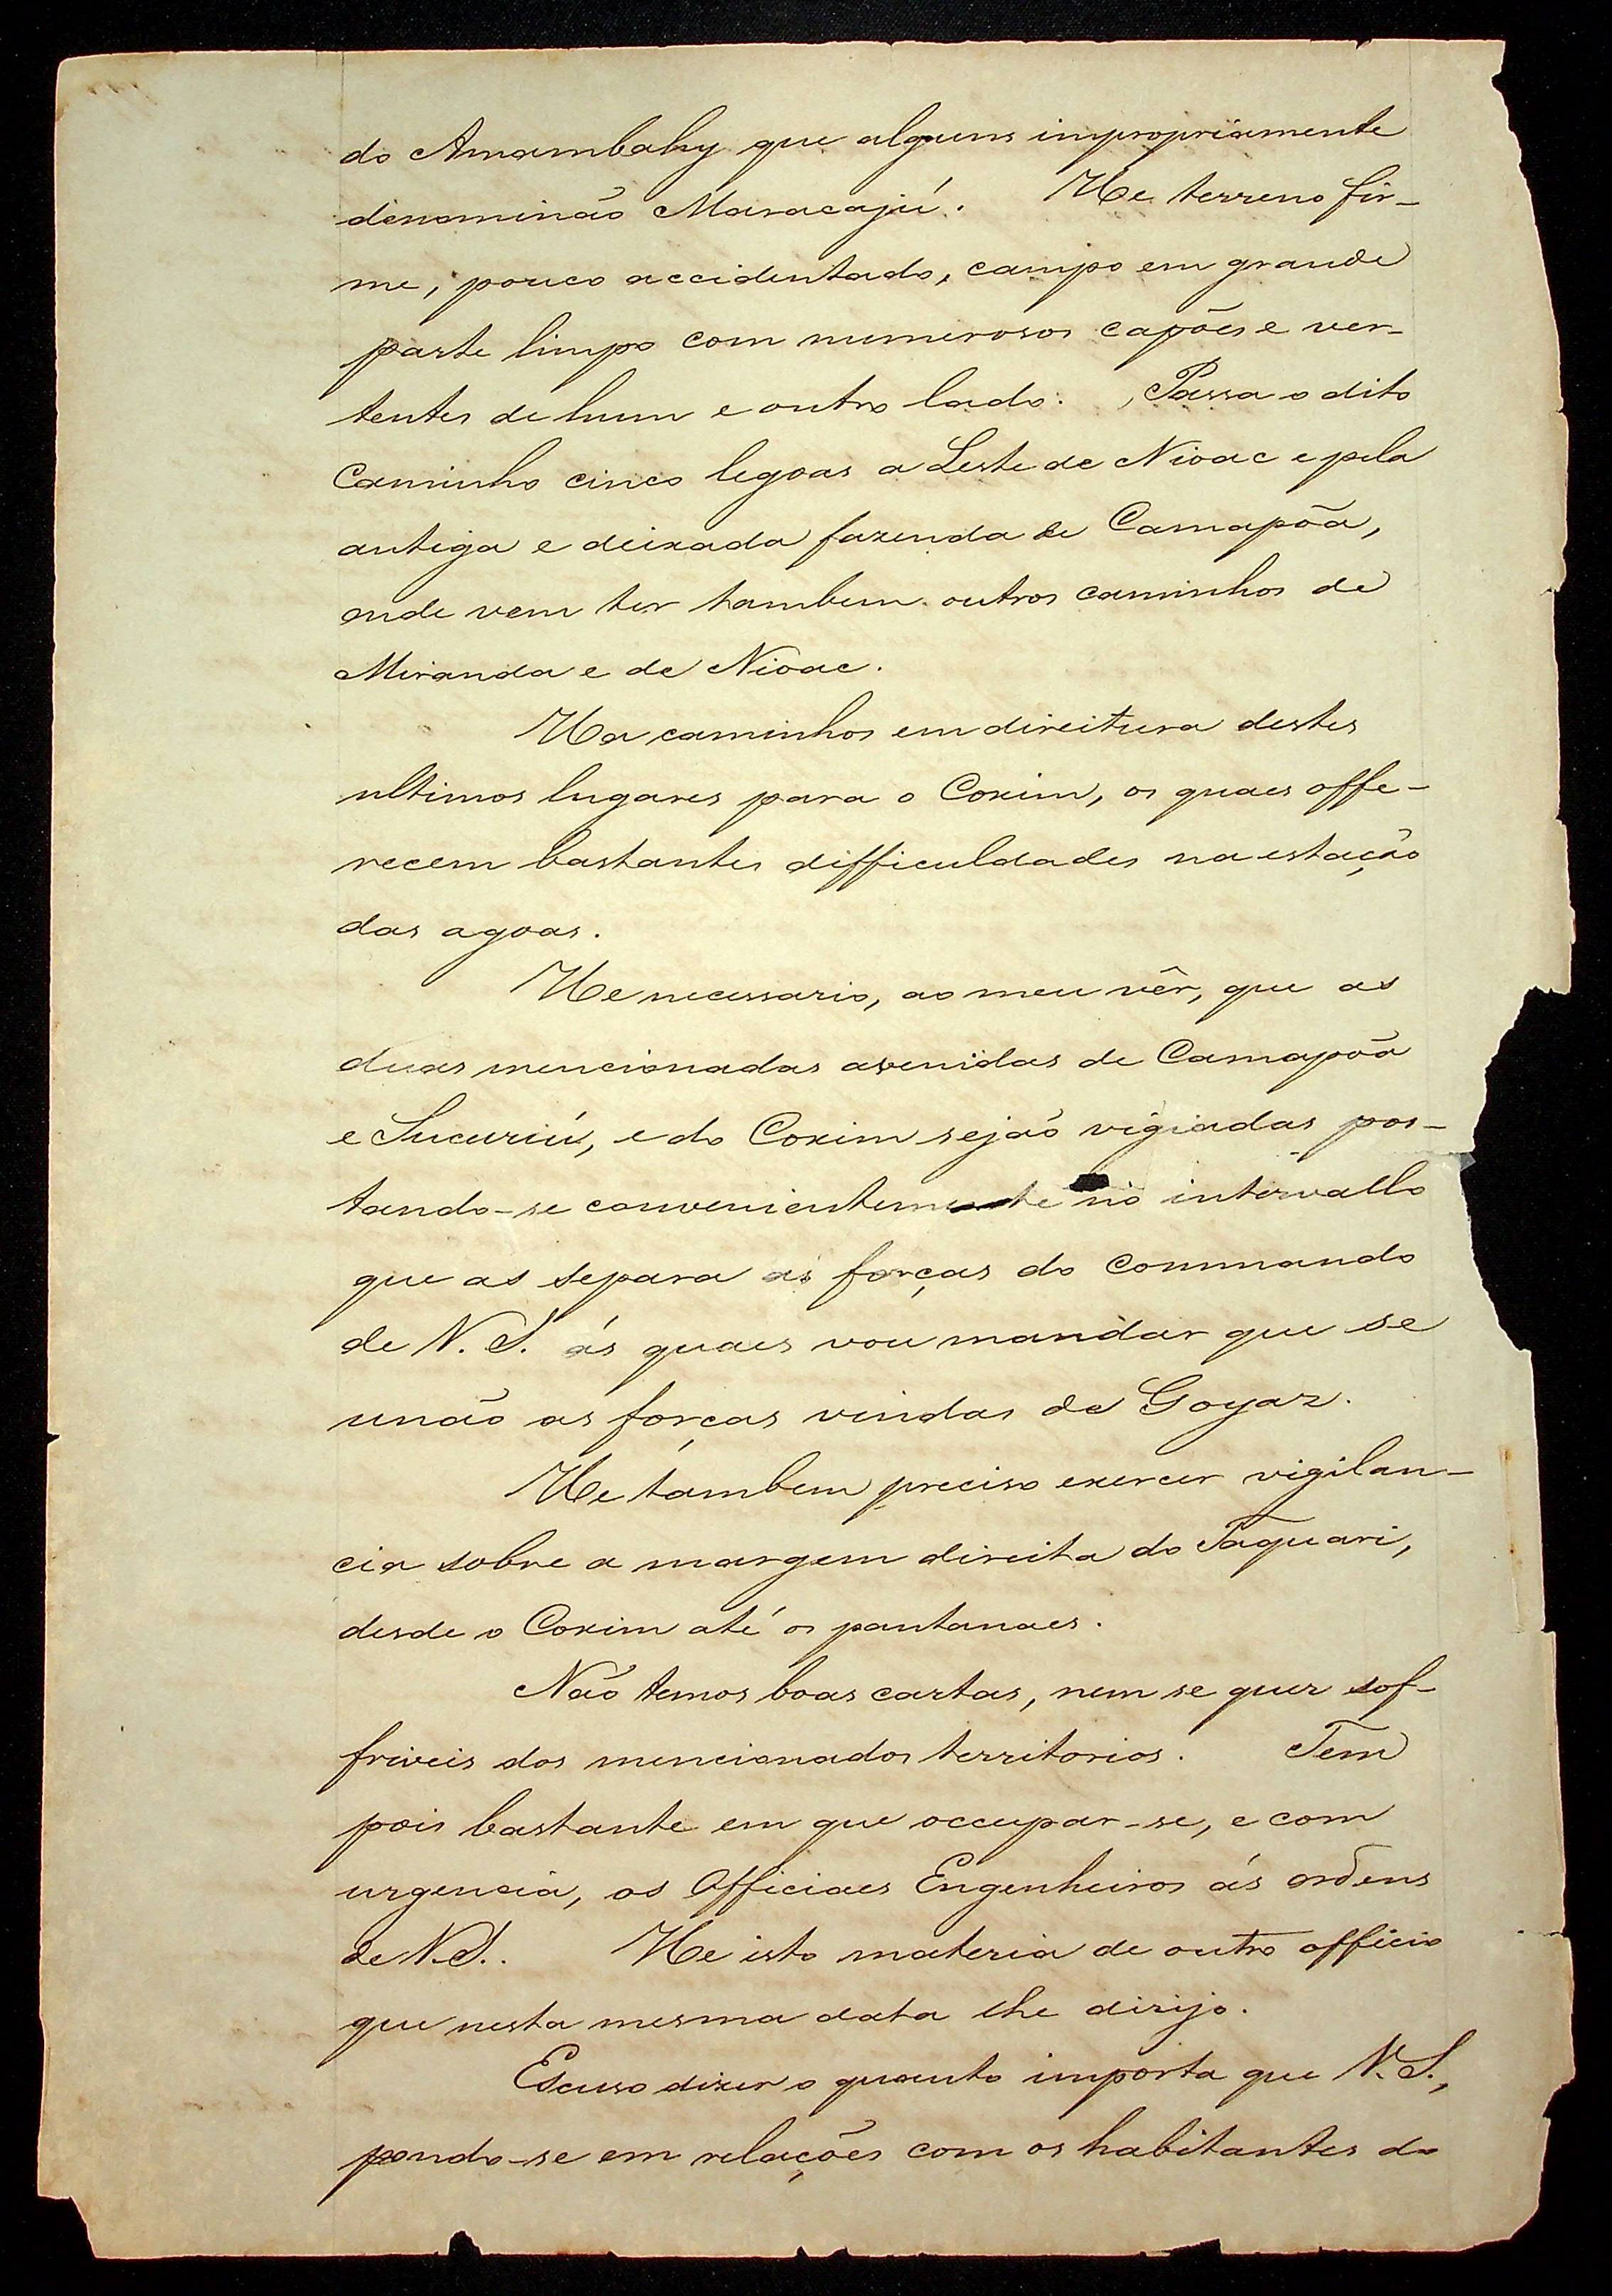 do Amambahy que alguns impropriamente
denominão Maracajú. He terreno fir-
me, pouco accidentado, campo em grande
parte limpo com numerosos capões e ver-
tentes de hum e outro lado. Passa o dito
Caminho cinco legoas a Leste de Nioac e pela
antiga e deixada fazenda de Camapõa,
onde vem ter tambem outros caminhos de
Miranda e de Nioac.
Ha caminhos em direitura destes
ultimos lugares para o Coxim, os quaes offe-
recem bastantes difficuldades na estação
das agoas.
He necessario, ao meu vêr, que as
duas mencionadas avenidas de Camapõa
e Sucuriú, e do Coxim sejão vigiadas pos-
tando-se convenientemente no intervallo
que as separa as forças do Commando
de V. S. ás quaes vou mandar que se
unão as forças vindas de Goyaz.
He tambem preciso exercer vigilan-
cia sobre a margem direita do Taquari,
desde o Coxim até os pantanaes.
Não temos boas cartas, nem se quer sof-
friveis dos mencionados territorios. Tem
pois bastante em que occupar-se, e com
urgencia, os Officiaes Engenheiros ás ordens
de V. S.. He isto materia de outro officio
que nesta mesma data lhe dirijo.
Escuso dizer o quanto importa que V. S.,
pondo-se em relações com os habitantes do